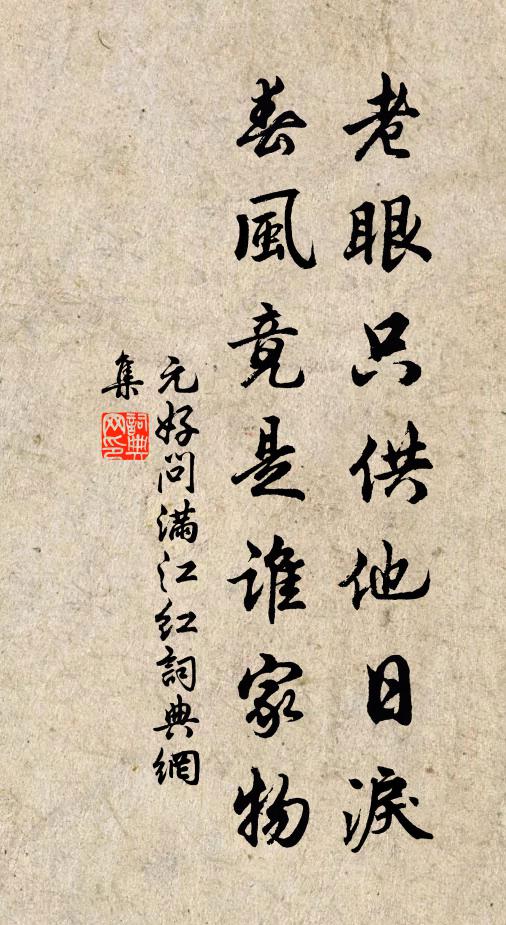 老眼只供他日淚
春風竟是誰家物
元好问滿江红詞典網
集
詞典
网印